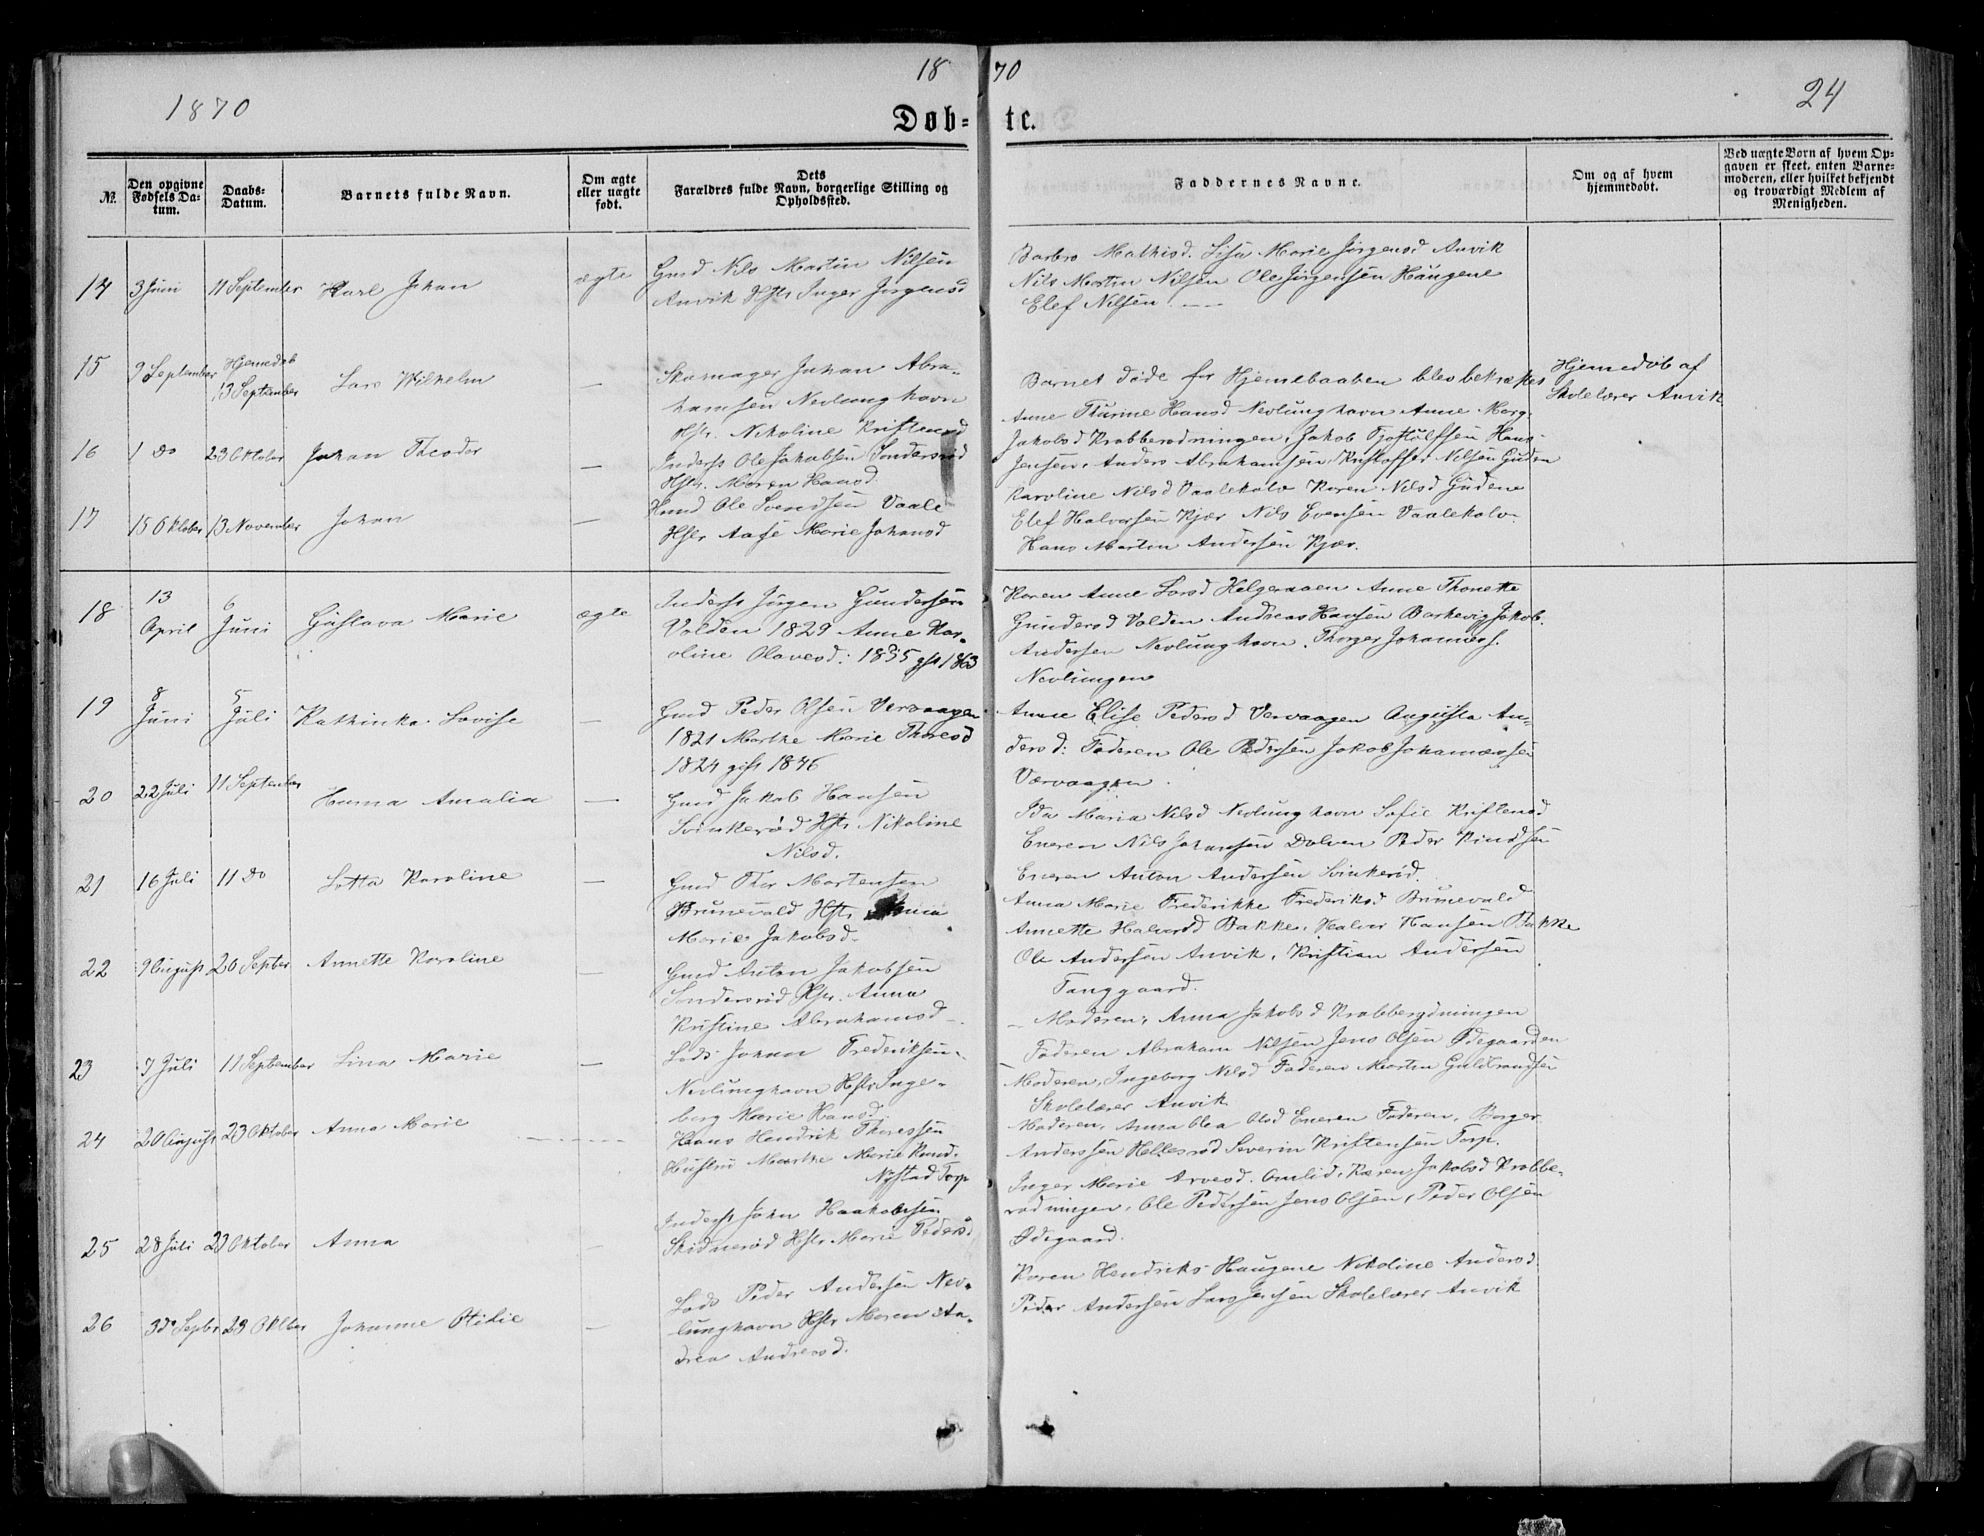 18 70
1870
24
Døb= te.
№.
Den opgivne Fødsels Da-tum.
Daabs-Datum.
Barnets fulde Navn.
Om ægte eller uægte født.
Dets Forældres fulde Navn, borgerlige Stilling og Opholdssted.
Faddernes Navne.
Om og af hvem hjemmedøbt.
Ved uægte Børn af hvem Op-gaven er skeet, enten Barne-moderen, eller hvilket bekjendt og troværdigt Medlem af Menigheden.
14 3 Juni 11 September Karl Johan ægte
Gmd Nils Martin Nilsen
Anvik Hstr Inger Jörgensd
Barbro Mathisd. Lisa Marie Jörgensd Anvik
Nils Martin Nilsen Ole Jörgensen Haugene
Elef Nilsen.
15 9 September Hjemedøb
13 September Lars Wilhelm —
Skomager Johan Abra-
hamsen Nevlunghavn
Hstr. Nikoline Kristensd
Barnet døde før Hjemedaaben blev bekræftet
Hjemedøb af
Skolelærer Anvik
16 1 Do 23 Oktober Johan Theodor —
Inderst Ole Jakobsen Sondersröd
Hstr. Maren Hansd.
Anne Thurine Hansd Nevlunghavn Anne Marg.
Jakobsd Krabberödningen, Jakob Tjostolfsen Hans
Jensen, Anders Abrahamsen, Kristoffer Nilsen Guden
17 15 Oktober 13 November Johan —
Kmd Ole Svendsen Vaale
Hstr Aase Marie Johansd
Karoline Nilsd Vaalekolv Karen Nilsd Gudene
Elef Halvorsen Kjær Nils Evensen Vaalekolv
Hans Martin Andersen Kjær.
18 13
April 6
Juni Gustava Marie ægte
Inderst Jörgen Gundersen
Volden 1829 Anne Kar-
oline Olavesd: 1835 gft 1863
Karen Anne Larsd Helgeroaen Anne Thonette
Gundersd Volden Andreas Hansen Barkevig Jakob
Andersen Nevlunghavn. Thorger Johannes.
Nevlungen
19 8
Juni 5
Juli Kathinka Lovise —
Gmd Peder Olsen Vervaagen
1821 Marthe Marie Thoresd
1824 gift 1846
Anne Elise Pedersd Vervaagen Augusta An-
dersd: Faderen Ole Pedersen Jakob Johannessen
Værvaagen.
20 22 Juli 11 September Hanna Amalia —
Gmd Jakob Hansen
Svinkeröd Hstr Nikoline
Nilsd.
Ida Maria Nilsd Nevlunghavn Sofie Kristensd
Eneren Nils Johansen Dolven Peder Knudsen
Eneren Anton Andersen Svinkeröd.
21 16 Juli 11 Do Lotta Karoline —
Gmd Thor Mortensen
Brunevald Hstr Anna
Marie Jakobsd.
Anna Marie Frederikke Frederiksd Brunevald
Annette Halvorsd Bakke, Halvor Hansen Bakke
Ole Andersen Anvik, Kristian Andersen
Fanggaard.
22 9 August 20 Septber Annette Karoline —
Gmd Anton Jakobsen
Sondersröd Hstr. Anna
Kristine Abrahamsd
— Moderen, Anna Jakobsd Krabberydningen
Faderen Abraham Nilsen Jens Olsen Ødegaarden
23 7 Juli 11 September Lina Marie —
Lods Johan Frederiksen
Nevlunghavn Hstr Inge-
borg Marie Hansd.
Moderen, Ingeborg Nilsd Faderen Martin Guldbrandsen
Skolelærer Anvik
24 20 August 23 Oktober Anna Marie
Hans Hendrik Thoressen
Hustru Marthe Marie Knud.
Nystad Torp
Moderen, Anna Olea Olsd Eneren Faderen, Borger
Anderssen Hellesröd Severin Kristensen Torp.
25 28 Juli 23 Oktober Anna —
Inderst John Haakonsen
Skidneröd Hstr Marie Pedersd
Inger Marie Arvesd. Omlid, Karen Jakobsd Krabbe-
rødningen, Ole Pedersen Jens Olsen, Peder Olsen
Ødegaard.
26 3de Septbr 23 Oktber Johanne Otilie —
Lods Peder Andersen Nev-
lunghavn Hstr Maren An-
drea Andersd.
Karen Hendriks Haugene Nikoline Andersd
Peder Andersen Lars Jensen Skolelærer Anvik